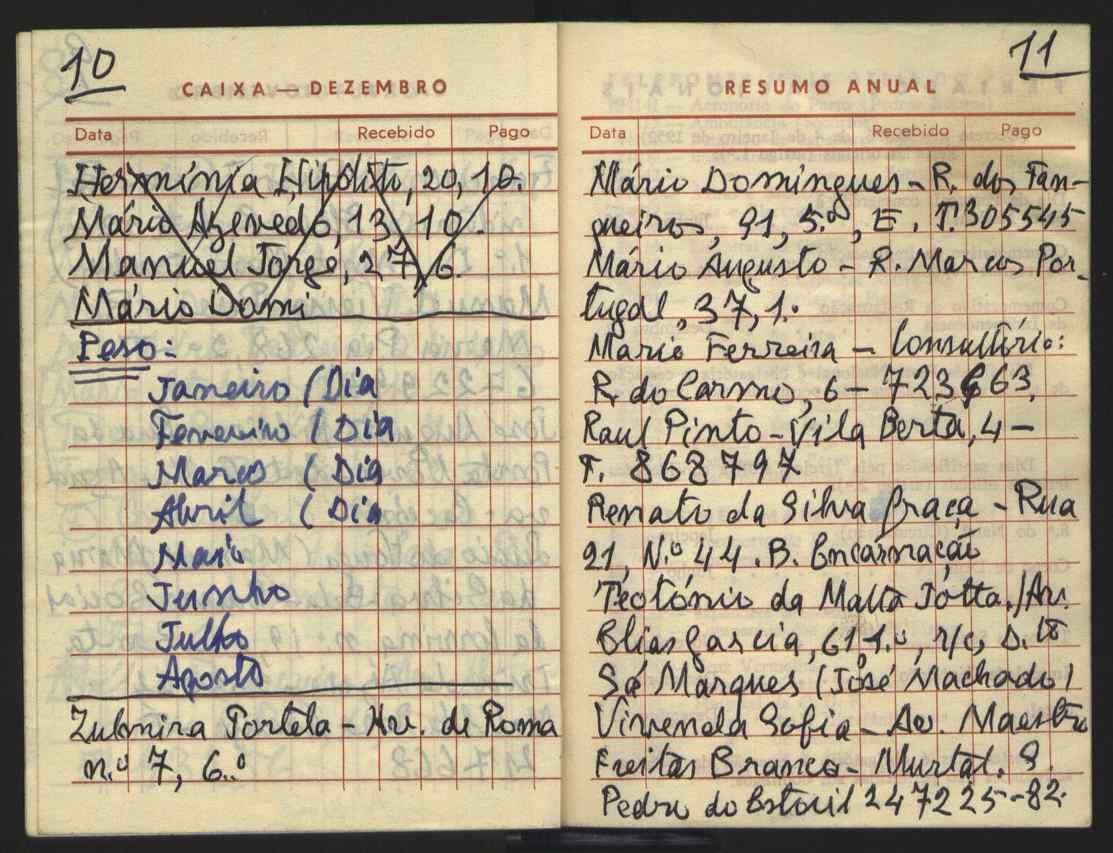 10
CAIXA — DEZEMBRO
Data Recebido Pago
Hermínia Hipólito, 20, 10.
Mário Azevedo, 13, 10.
Manuel Jorge, 27, 6.
Mário Domi
Peso:
Janeiro (Dia
Fevereiro (Dia
Março (Dia
Abril (Dia
Maio
Junho
Julho
Agosto
Zulmira Portela - Av. de Roma
n.º 7, 6.º
11
RESUMO ANUAL
Data Recebido Pago
Mário Domingues - R. dos Fan-
queiros, 91, 5.º, E. T. 305545
Mário Augusto - R. Marcos Por-
tugal, 37, 1.º
Mario Ferreira - Consultório:
R. do Carmo, 6 - 723663.
Raul Pinto - Vila Berta, 4 -
T. 868797
Renato da Silva Graça - Rua
21, N.º 44. B. Encarnação
Teotónio da Malta Jotta. / Av.
Elias Garcia, 61, 1.º, r/c, D.to
Sá Marques (José Machado)
Vivenda Sofia - Av. Maestro
Freitas Branco - Murtal. S.
Pedro do Estoril 247225-82.